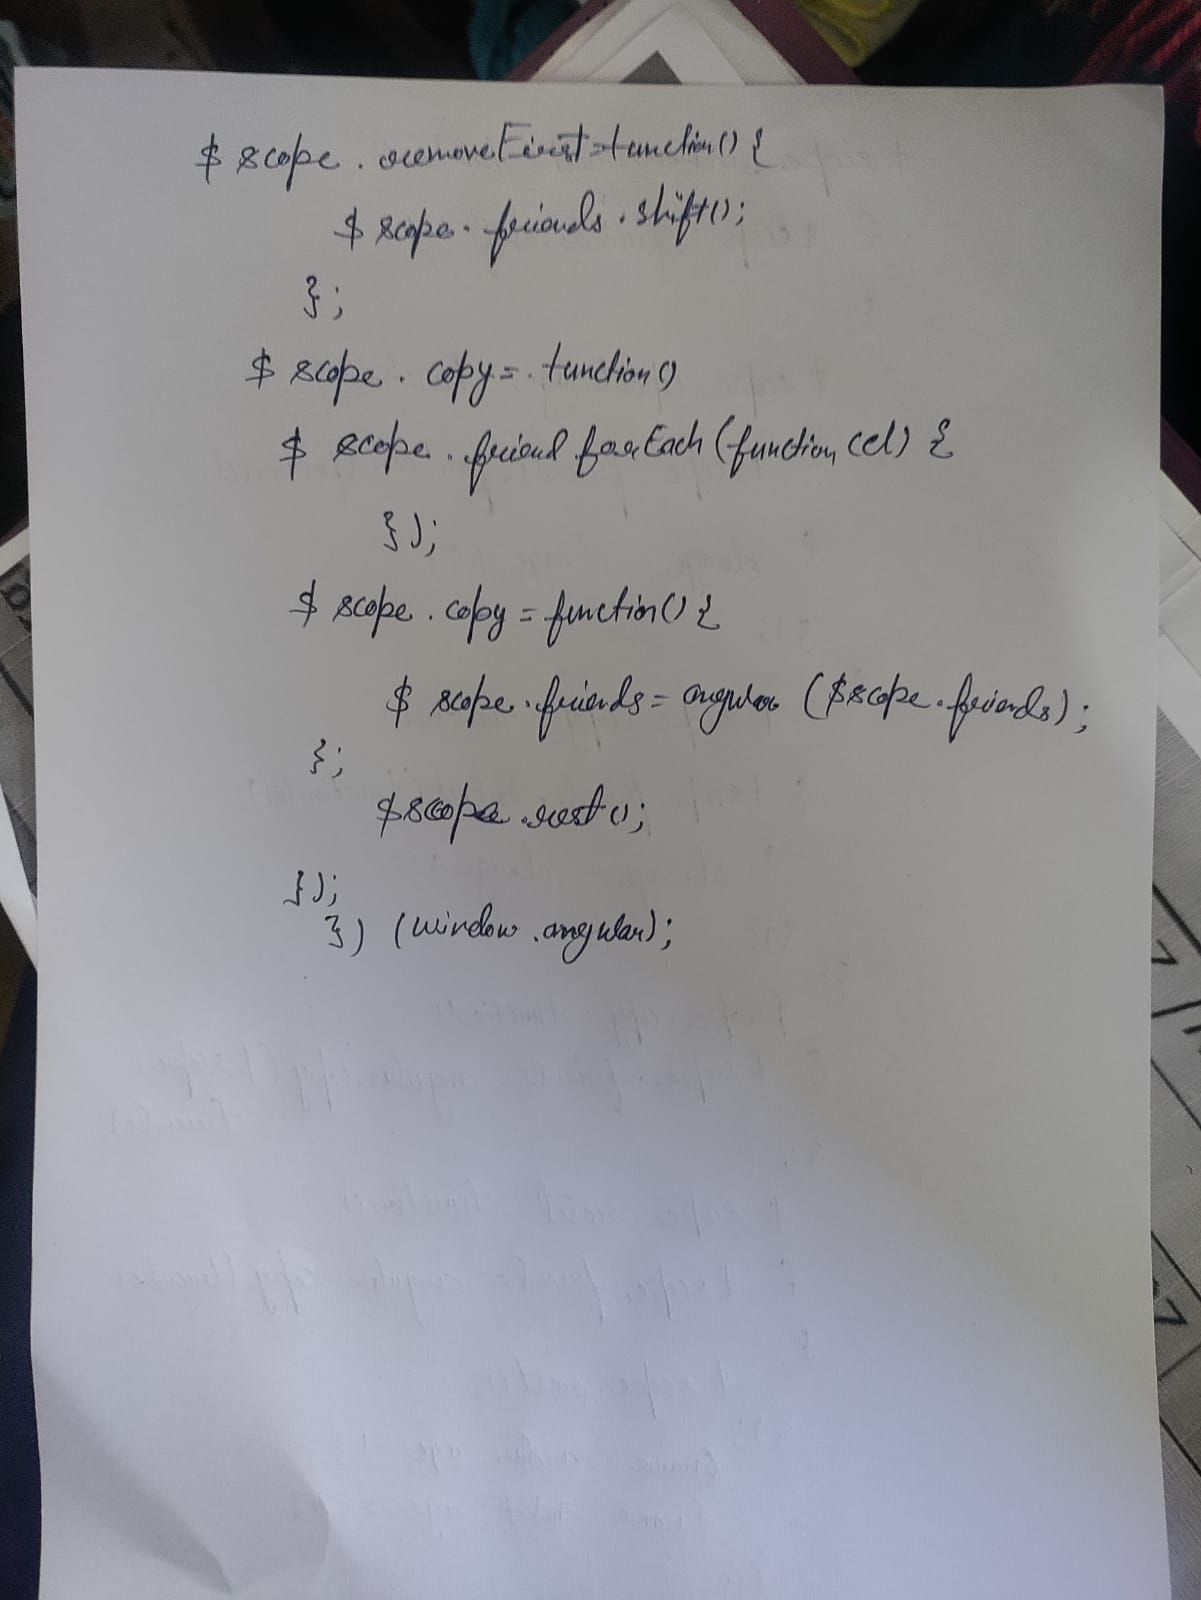 $ scope . removeFirst = function() {
$ scope . friends . shift();
};
$ scope . copy = . function()
$ scope . friend forEach (function (el) {
});
$ scope . copy = function() {
$ scope . friends = angular ($scope . friends);
};
$scope . rest();
});
}) (window . angular);